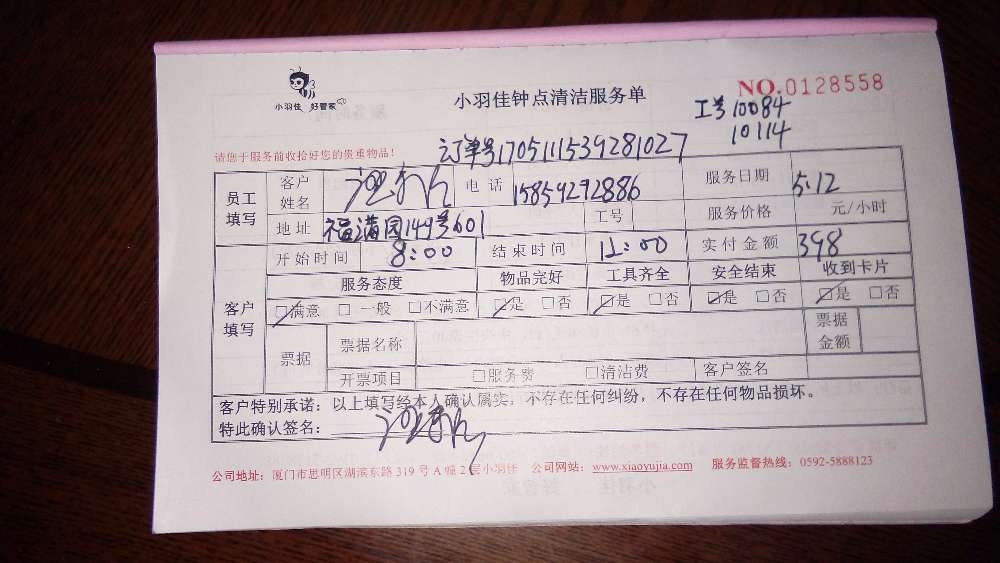 小羽佳 好管家
小羽佳钟点清洁服务单
NO.0128558
工号10084
10114
请您于服务前收拾好您的贵重物品!
订单号1705111539281027
员工填写
客户姓名
电话 15859292886
服务日期 5.12
地址 福满园149号601
工号
服务价格 元/小时
客户填写
开始时间 8:00
结束时间 12:00
实付金额 398
服务态度 物品完好 工具齐全 安全结束 收到卡片
☑满意 □一般 □不满意 ☑是 □否 ☑是 □否 ☑是 □否 ☑是 □否
票据
票据名称
票据金额
开票项目 □服务费 □清洁费 客户签名
客户特别承诺:以上填写经本人确认属实,不存在任何纠纷,不存在任何物品损坏。
特此确认签名:
公司地址:厦门市思明区湖滨东路319号A幢2层小羽佳 公司网站:www.xiaoyujia.com 服务监督热线:0592-5888123